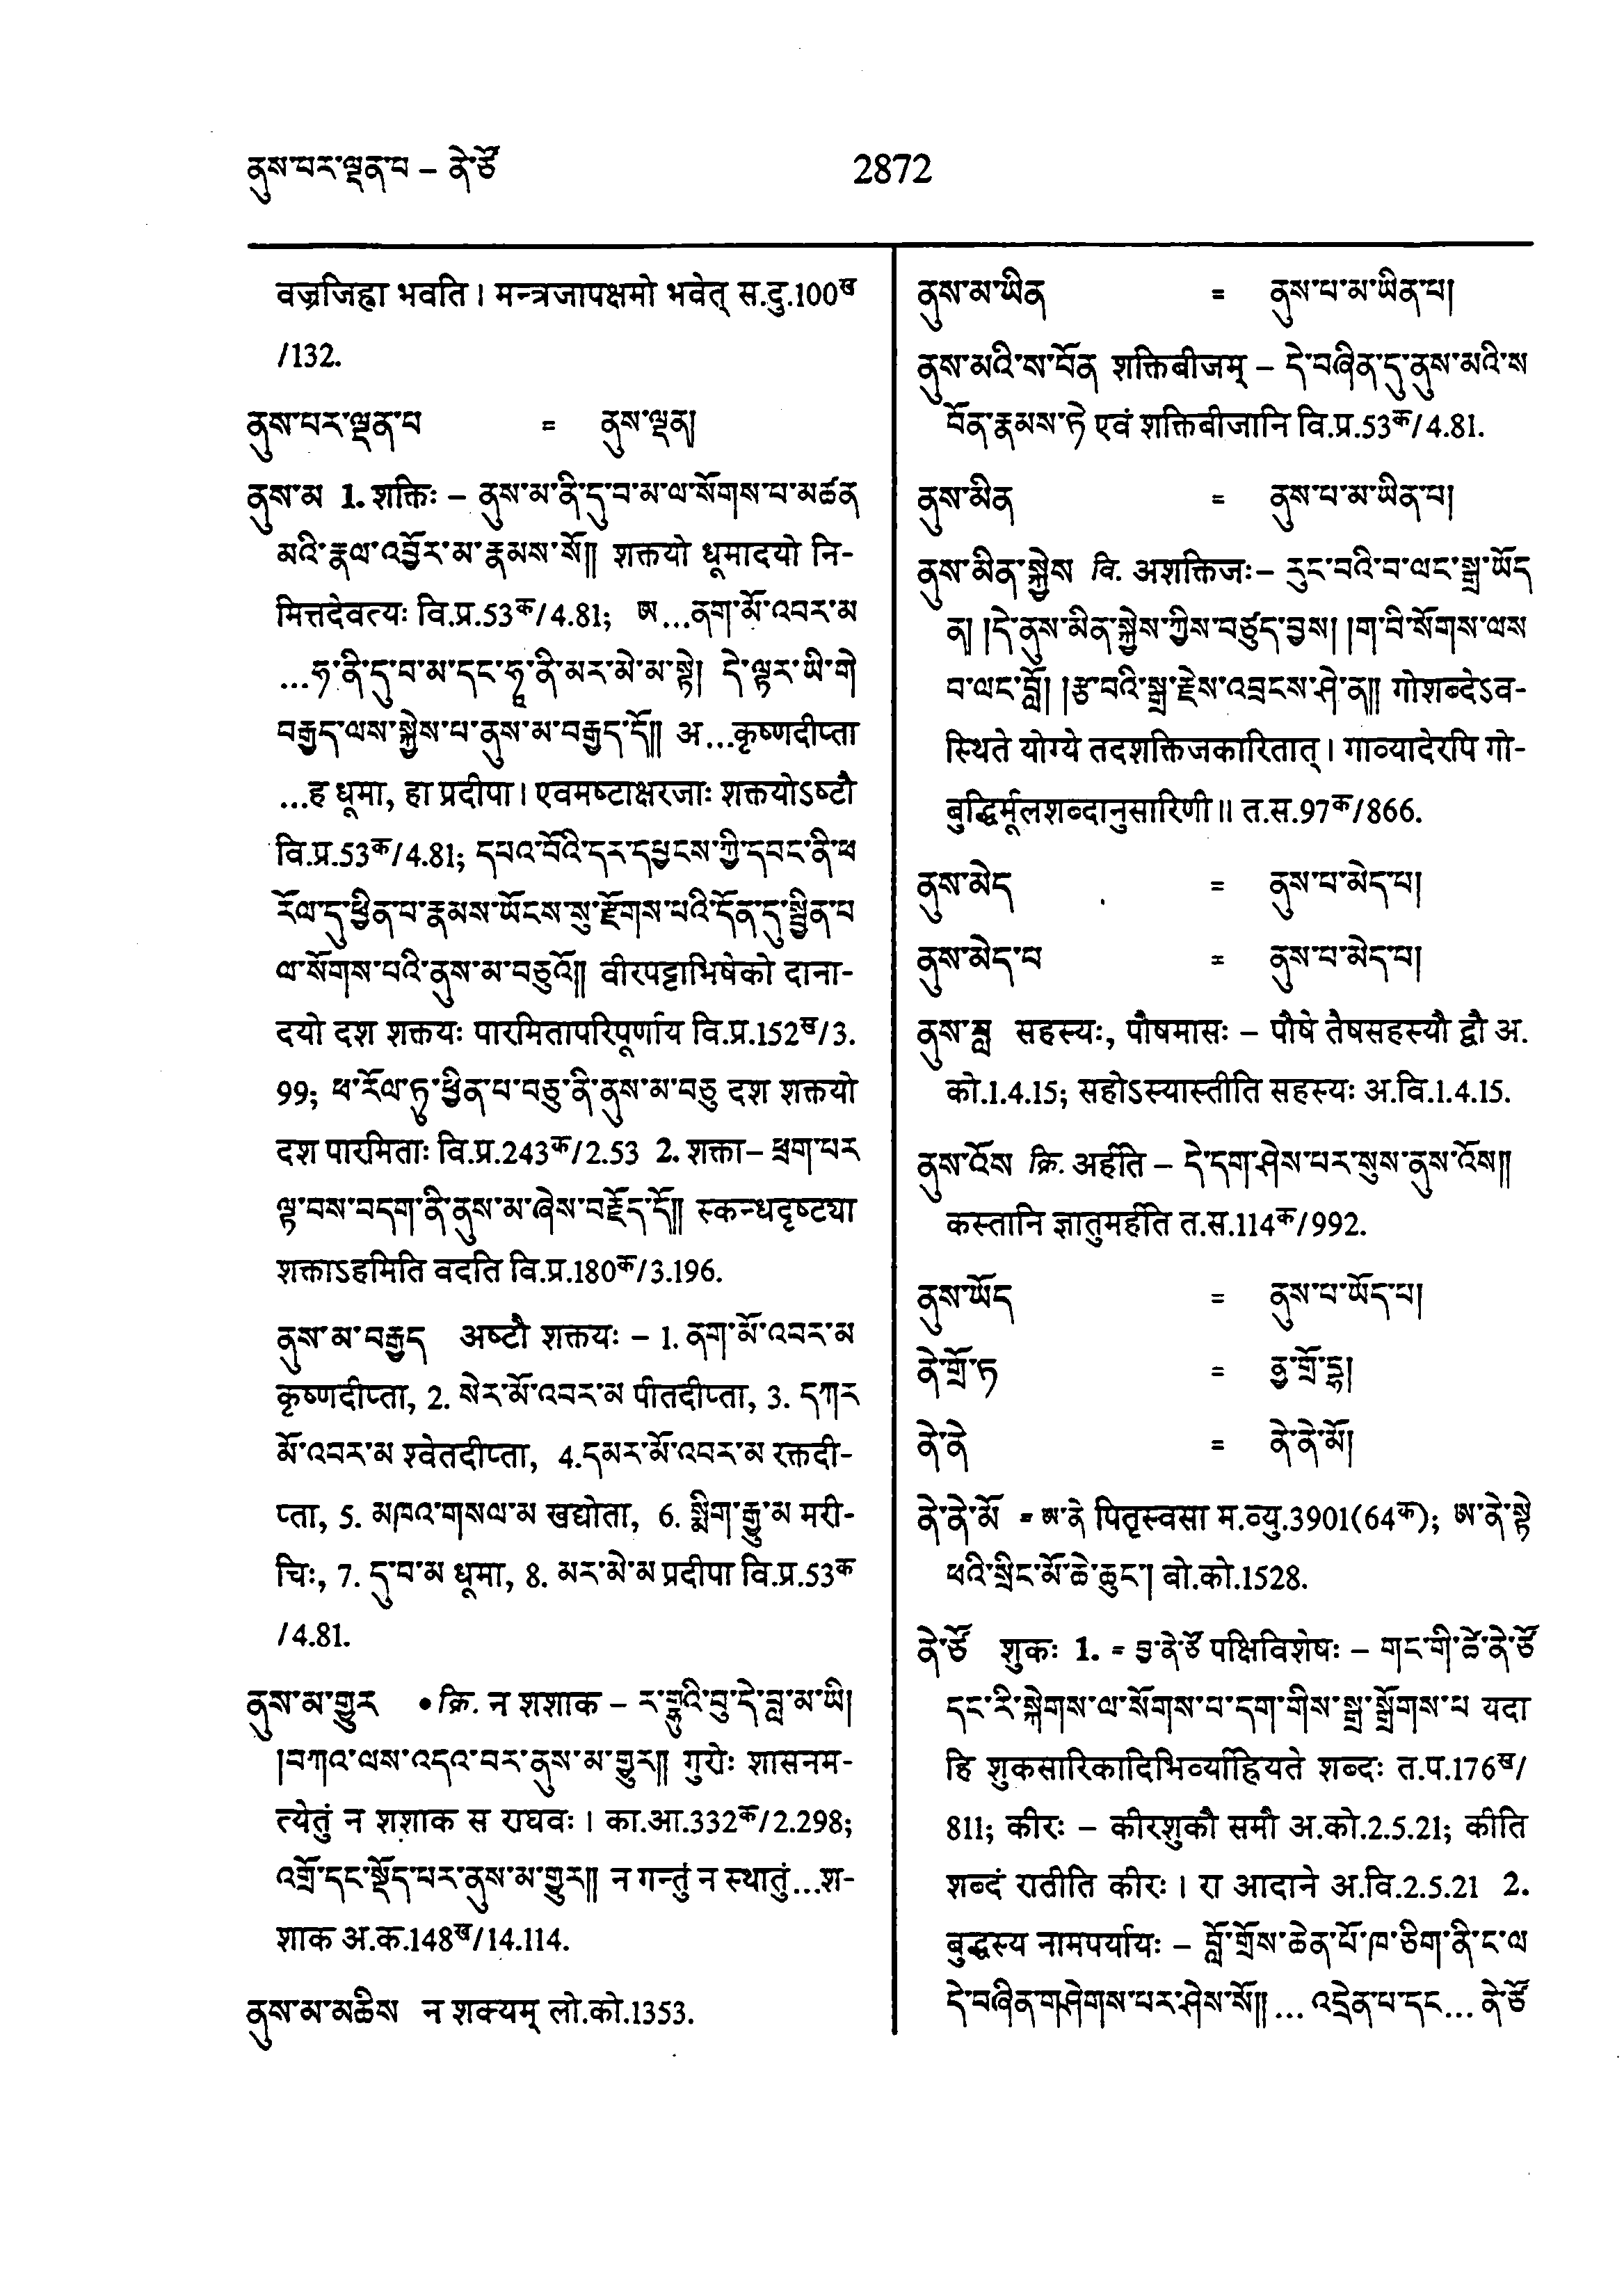 ནུས་པར་ལྡན་པ – ནེ་ཙོ
2872
वज्रजिह्वा भवति । मन्त्रजापक्षमो भवेत् स.दु.100ख
/132.
ནུས་པར་ལྡན་པ = ནུས་ལྡན།
ནུས་མ 1. शक्तिः – ནུས་མ་ནི་དུ་བ་མ་ལ་སོགས་པ་མཚན
མའི་རྣལ་འབྱོར་མ་རྣམས་སོ༎ शक्तयो धूमादयो नि-
मित्तदेवत्यः वि.प्र.53क/4.81; ཨ...ནག་མོ་འབར་མ
...ཧ་ནི་དུ་བ་མ་དང་ཧཱ་ནི་མར་མེ་མ་སྟེ། དེ་ལྟར་ཡི་གེ
བརྒྱད་ལས་སྐྱེས་པ་ནུས་མ་བརྒྱད་དོ༎ अ...कृष्णदीप्ता
...ह धूमा, हा प्रदीपा । एवमष्टाक्षरजाः शक्तयोऽष्टौ
वि.प्र.53क/4.81; དཔའ་བོའི་དར་དཔྱངས་ཀྱི་དབང་ནི་ཕ
རོལ་དུ་ཕྱིན་པ་རྣམས་ཡོངས་སུ་རྫོགས་པའི་དོན་དུ་སྦྱིན་པ
ལ་སོགས་པའི་ནུས་མ་བཅུའོ༎ वीरपट्टाभिषेको दाना-
दयो दश शक्तयः पारमितापरिपूर्णाय वि.प्र.152ख/3.
99; ཕ་རོལ་ཏུ་ཕྱིན་པ་བཅུ་ནི་ནུས་མ་བཅུ दश शक्तयो
दश पारमिताः वि.प्र.243क/2.53 2. शक्ता– ཕྲག་པར
ལྟ་བས་བདག་ནི་ནུས་མ་ཞེས་བརྗོད་དོ༎ स्कन्धदृष्ट्या
शक्ताऽहमिति वदति वि.प्र.180क/3.196.
ནུས་མ་བརྒྱད अष्टौ शक्तयः – 1. ནག་མོ་འབར་མ
कृष्णदीप्ता, 2. སེར་མོ་འབར་མ पीतदीप्ता, 3. དཀར
མོ་འབར་མ श्वेतदीप्ता, 4.དམར་མོ་འབར་མ रक्तदी-
प्ता, 5. མཁའ་གསལ་མ खद्योता, 6. སྨིག་རྒྱུ་མ मरी-
चिः, 7. དུ་བ་མ धूमा, 8. མར་མེ་མ प्रदीपा वि.प्र.53क
/4.81.
ནུས་མ་གྱུར • क्रि. न शशाक – ར་གྷུའི་བུ་དེ་བླ་མ་ཡི།
།བཀའ་ལས་འདའ་བར་ནུས་མ་གྱུར༎ गुरोः शासनम-
त्येतुं न शशाक स राघवः । का.आ.332क/2.298;
འགྲོ་དང་སྡོད་པར་ནུས་མ་གྱུར༎ न गन्तुं न स्थातुं...श-
शाक अ.क.148ख/14.114.
ནུས་མ་མཆིས न शक्यम् लो.को.1353.
ནུས་མ་ཡིན = ནུས་པ་མ་ཡིན་པ།
ནུས་མའི་ས་བོན शक्तिबीजम् – དེ་བཞིན་དུ་ནུས་མའི་ས
བོན་རྣམས་ཏེ एवं शक्तिबीजानि वि.प्र.53क/4.81.
ནུས་མིན = ནུས་པ་མ་ཡིན་པ།
ནུས་མིན་སྐྱེས वि. अशक्तिजः– རུང་བའི་བ་ལང་སྒྲ་ཡོད
ན། །དེ་ནུས་མིན་སྐྱེས་ཀྱིས་བཙུད་བྱས། །ག་བི་སོགས་ལས
བ་ལང་བློ། །རྩ་བའི་སྒྲ་རྗེས་འབྲངས་ཤེ་ན༎ गोशब्देऽव-
स्थिते योग्ये तदशक्तिजकारितात् । गाव्यादेरपि गो-
बुद्धिर्मूलशब्दानुसारिणी ॥ त.स.97क/866.
ནུས་མེད = ནུས་པ་མེད་པ།
ནུས་མེད་པ = ནུས་པ་མེད་པ།
ནུས་ཟླ सहस्यः, पौषमासः – पौषे तैषसहस्यौ द्वौ अ.
को.1.4.15; सहोऽस्यास्तीति सहस्यः अ.वि.1.4.15.
ནུས་འོས क्रि. अर्हति – དེ་དག་ཤེས་པར་སུས་ནུས་འོས༎
कस्तानि ज्ञातुमर्हति त.स.114क/992.
ནུས་ཡོད = ནུས་པ་ཡོད་པ།
ནེ་གྲོ་ཏ = ནྱ་གྲོ་དྷ།
ནེ་ནེ = ནེ་ནེ་མོ།
ནེ་ནེ་མོ = ཨ་ནེ पितृस्वसा म.व्यु.3901(64क); ཨ་ནེ་སྟེ
ཕའི་སྲིང་མོ་ཆེ་ཆུང་། बो.को.1528.
ནེ་ཙོ शुकः 1. = བྱ་ནེ་ཙོ पक्षिविशेषः – གང་གི་ཚེ་ནེ་ཙོ
དང་རི་སྐེགས་ལ་སོགས་པ་དག་གིས་སྒྲ་སྒྲོགས་པ यदा
हि शुकसारिकादिभिर्व्याह्रियते शब्दः त.प.176ख/
811; कीरः – कीरशुकौ समौ अ.को.2.5.21; कीति
शब्दं रातीति कीरः । रा आदाने अ.वि.2.5.21 2.
बुद्धस्य नामपर्यायः – བློ་གྲོས་ཆེན་པོ་ཁ་ཅིག་ནི་ང་ལ
དེ་བཞིན་གཤེགས་པར་ཤེས་སོ༎ ... འདྲེན་པ་དང... ནེ་ཙོ